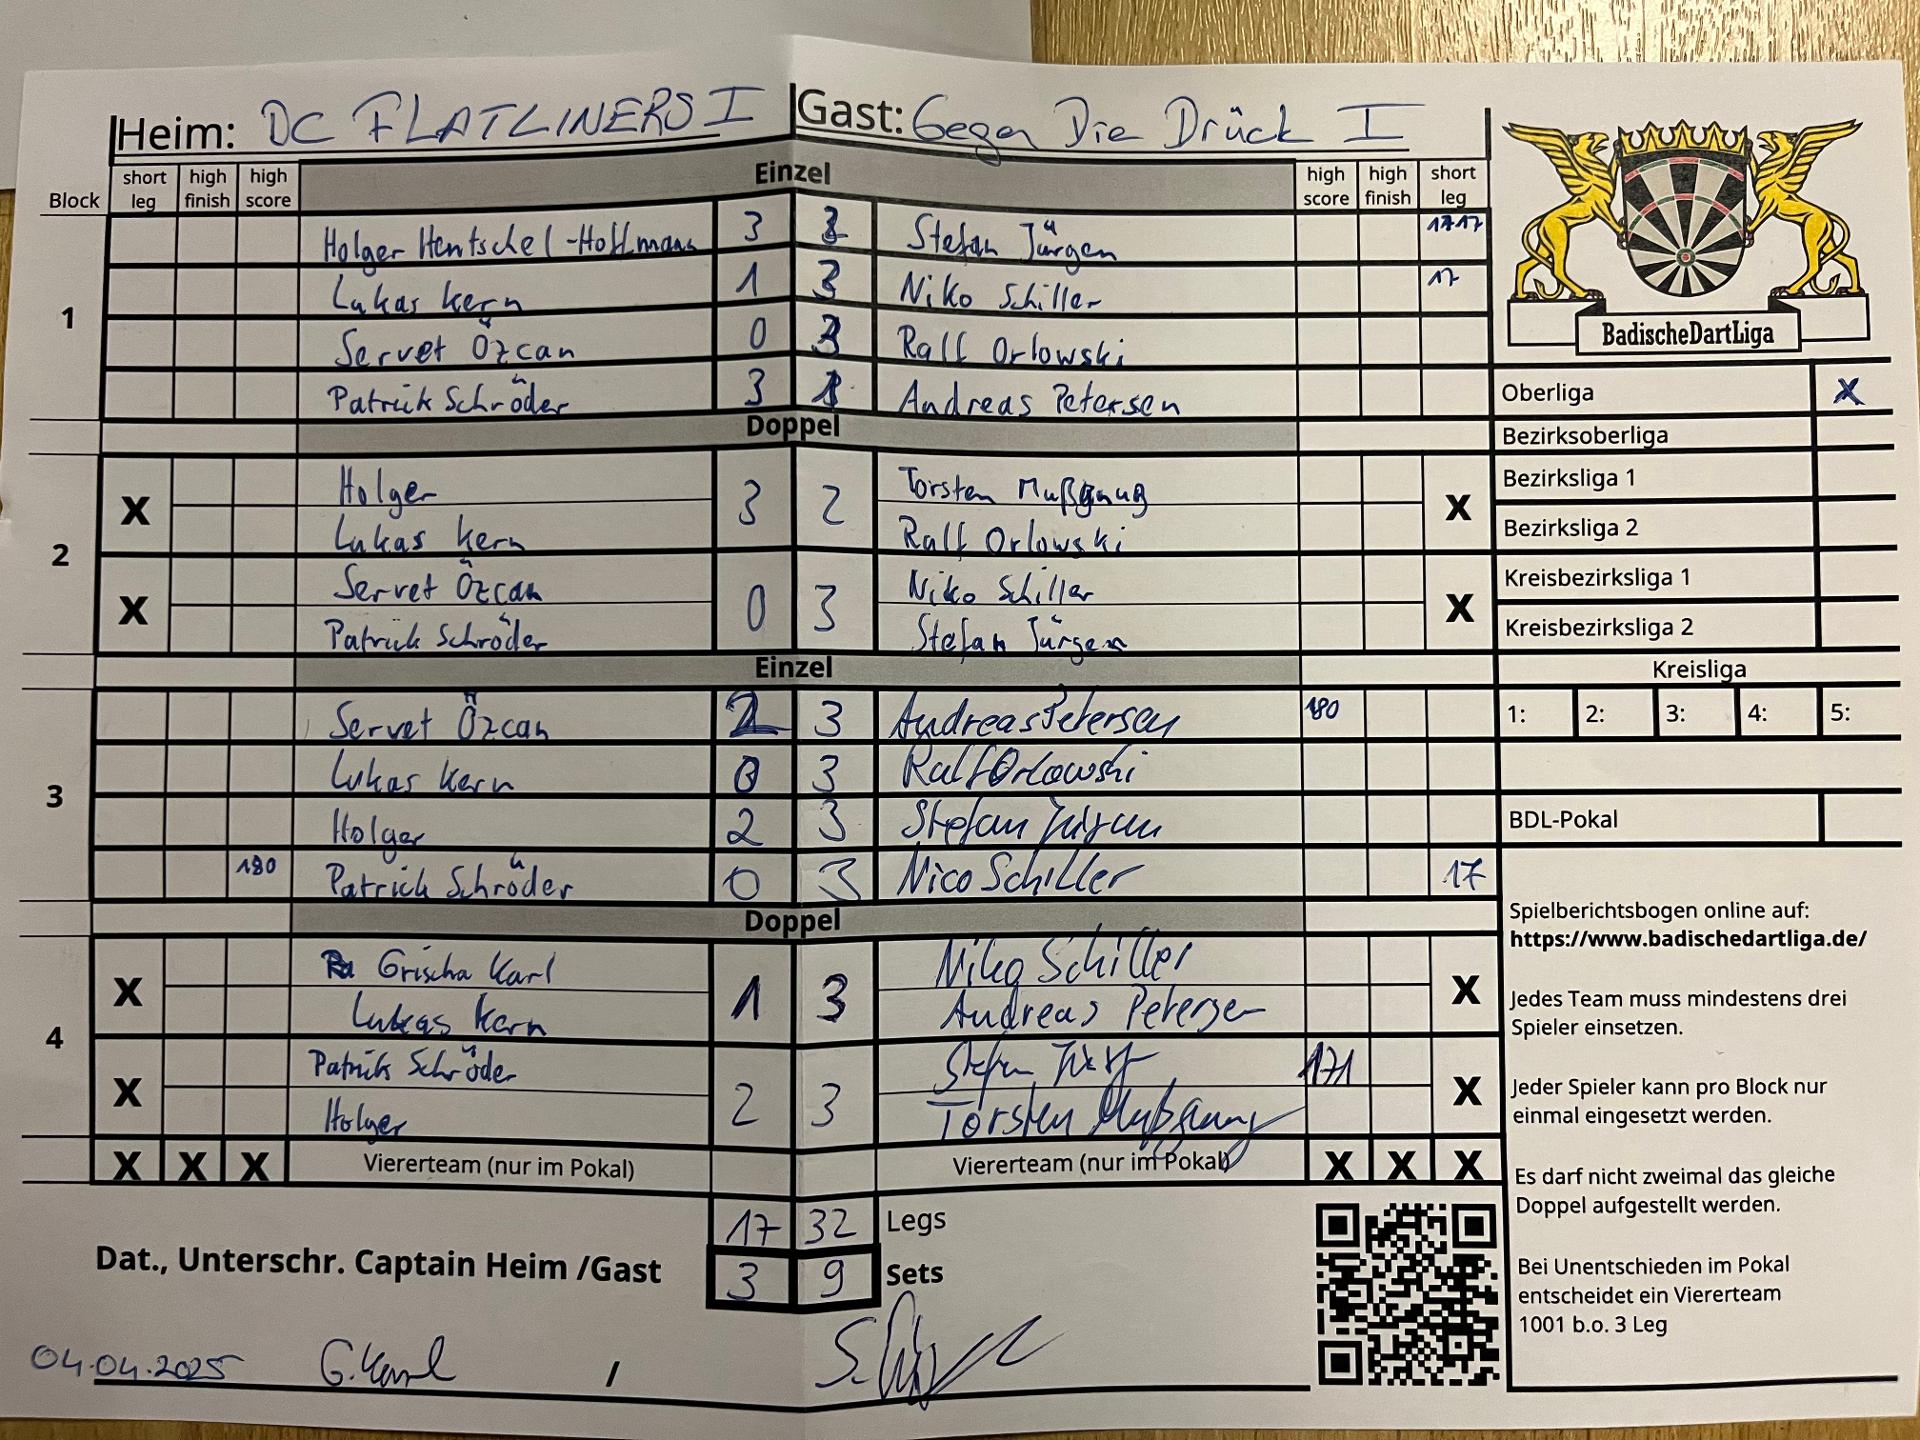 Heim: DC FLATLINERS I Gast: Gegen Die Drück I
Block short leg high finish high score Einzel high score high finish short leg
1
Holger Hentschel-Hoffmann 3 Stefan Jürgen 17 17
Lukas Kern 1 3 Niko Schiller 17
Servet Özcan 0 3 Ralf Orlowski
Patrick Schröder 3 1 Andreas Petersen
Doppel
2
X Holger 3 2 Torsten Mußgnug X
Lukas Kern Ralf Orlowski
X Servet Özcan 0 3 Niko Schiller X
Patrick Schröder Stefan Jürgen
Einzel
3
Servet Özcan 2 3 Andreas Petersen 180
Lukas Kern 0 3 Ralf Orlowski
Holger 2 3 Stefan Jürgen
180 Patrick Schröder 0 3 Nico Schiller 17
Doppel
4
X Grischa Karl 1 3 Niko Schiller X
Lukas Kern Andreas Petersen
X Patrick Schröder 2 3 Stefan 171 X
Holger Torsten Mußgnug
X X X Viererteam (nur im Pokal) Viererteam (nur im Pokal) X X X
17 32 Legs
Dat., Unterschr. Captain Heim /Gast 3 9 Sets
04.04.2025 G. Karl /
BadischeDartLiga
Oberliga X
Bezirksoberliga
Bezirksliga 1
Bezirksliga 2
Kreisbezirksliga 1
Kreisbezirksliga 2
Kreisliga
1: 2: 3: 4: 5:
BDL-Pokal
Spielberichtsbogen online auf:
https://www.badischedartliga.de/
Jedes Team muss mindestens drei
Spieler einsetzen.
Jeder Spieler kann pro Block nur
einmal eingesetzt werden.
Es darf nicht zweimal das gleiche
Doppel aufgestellt werden.
Bei Unentschieden im Pokal
entscheidet ein Viererteam
1001 b.o. 3 Leg